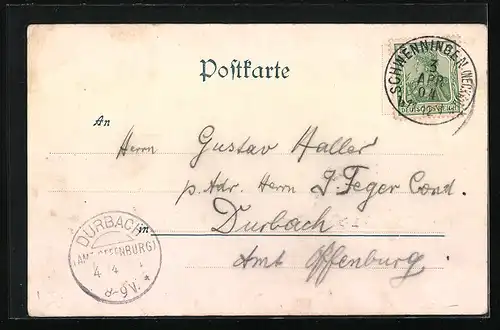 Postkarte
SCHWENNINGEN (NECKAR)
3
APR
04
DEUTSCHES REICH
An
Herrn Gustav Haller
p. Adr. Herrn J. Feger Cond.
in Durbach
Amt Offenburg
DURBACH
(AMT OFFENBURG)
4 4
8-9V. *